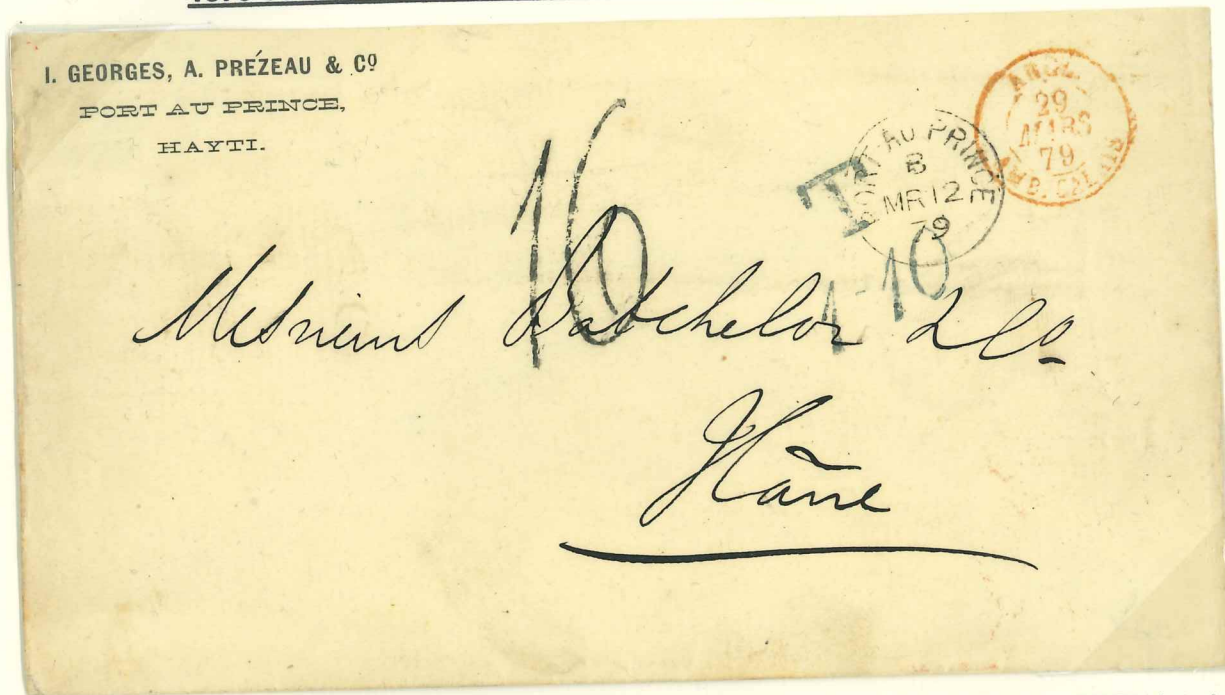 I. GEORGES, A. PRÉZEAU & Cº
PORT AU PRINCE,
HAYTI.
ANGL.
29
MARS
79
PORT-AU PRINCE
B
MR 12
79
T
16
1-10
Messieurs Batchelor & Cº
Hâvre